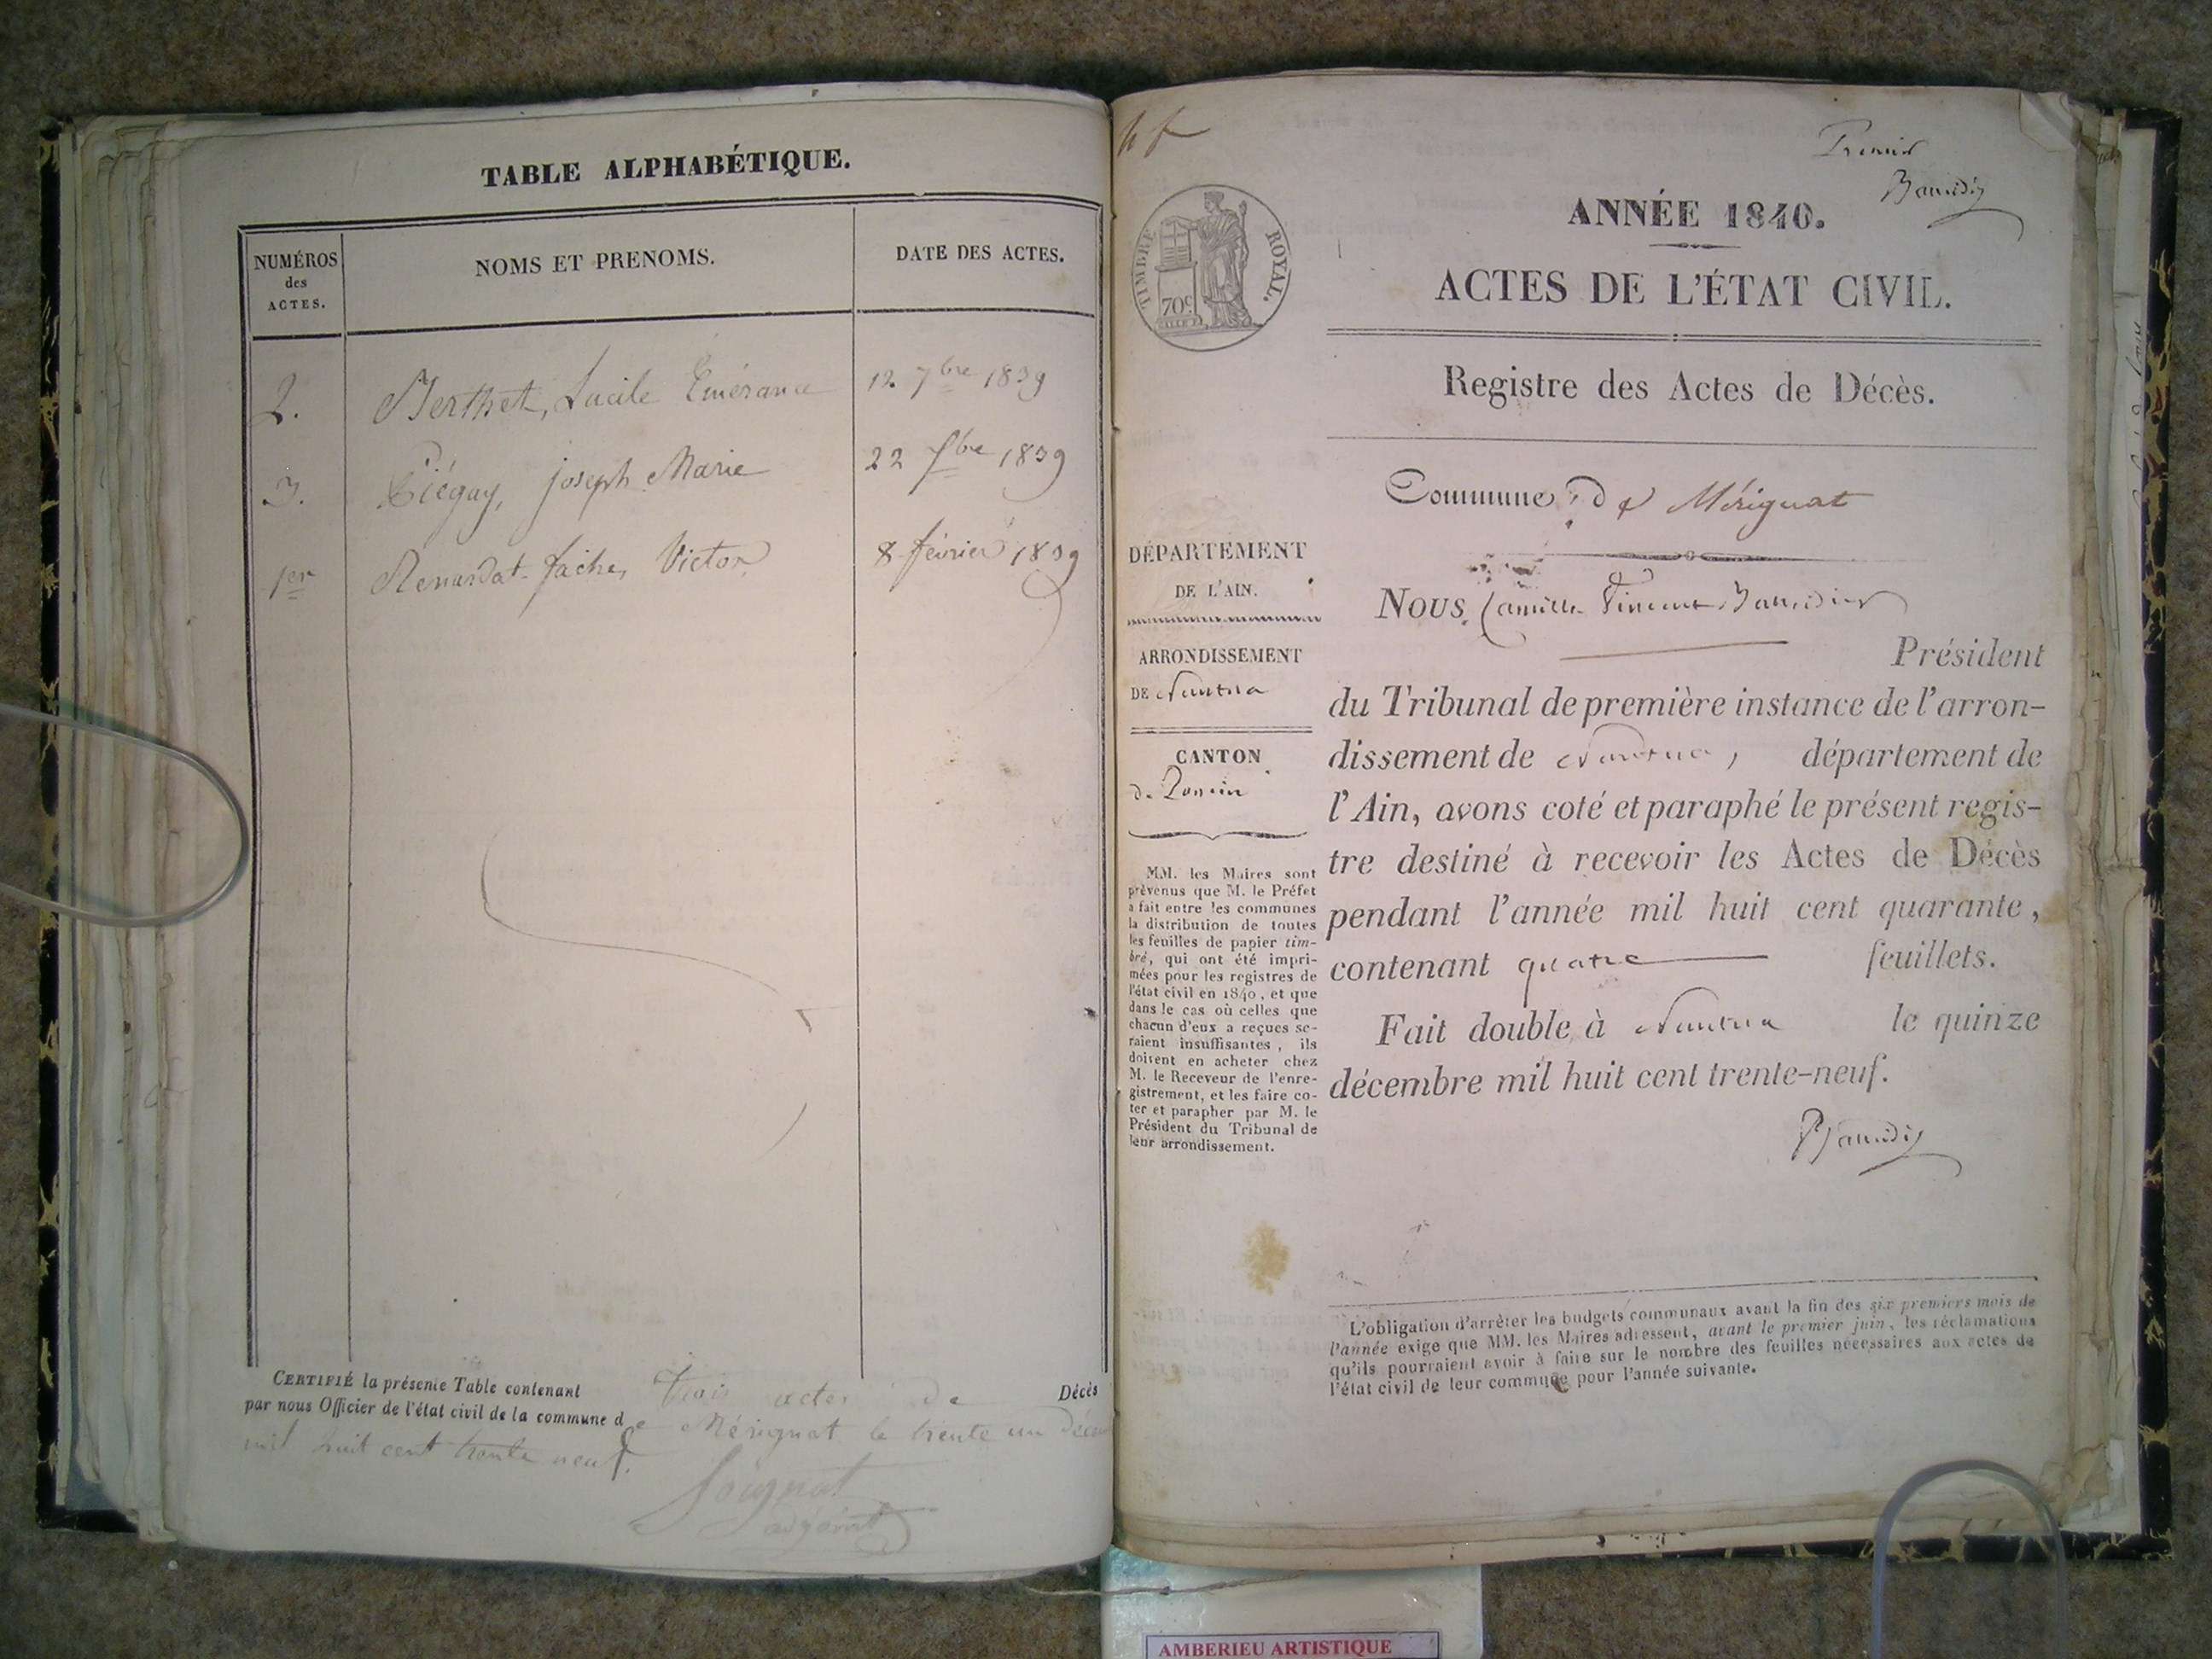 TABLE ALPHABÉTIQUE.
NUMÉROS
des
ACTES.
NOMS ET PRENOMS.
DATE DES ACTES.
2. Berthet, Lucile Emérance 12 7bre 1839
3. Piégay, joseph Marie 22 1839
1er Renardat-fache, Victor 8 février 1839
CERTIFIÉ la présente Table contenant Trois actes de Décès
par nous Officier de l'état civil de la commune de Mérignat le trente un
mil huit cent trente neuf.
adjoint
Premier
Baudin
ANNÉE 1840.
TIMBRE ROYAL.
70c
ACTES DE L'ÉTAT CIVIL.
Registre des Actes de Décès.
Commune de Mérignat
DÉPARTEMENT
DE L'AIN.
ARRONDISSEMENT
DE Nantua
CANTON
de Poncin
MM. les Maires sont
prévenus que M. le Préfet
a fait entre les communes
la distribution de toutes
les feuilles de papier tim-
bré, qui ont été impri-
mées pour les registres de
l'état civil en 1840, et que
dans le cas où celles que
chacun d'eux a reçues se-
raient insuffisantes, ils
doivent en acheter chez
M. le Receveur de l'enre-
gistrement, et les faire co-
ter et parapher par M. le
Président du Tribunal de
leur arrondissement.
Nous, Camille Vincent
Président
du Tribunal de première instance de l'arron-
dissement de Nantua, département de
l'Ain, avons coté et paraphé le présent regis-
tre destiné à recevoir les Actes de Décès
pendant l'année mil huit cent quarante,
contenant quatre feuillets.
Fait double à Nantua le quinze
décembre mil huit cent trente-neuf.
L'obligation d'arrêter les budgets communaux avant la fin des six premiers mois de
l'année exige que MM. les Maires adressent, avant le premier juin, les réclamations
qu'ils pourraient avoir à faire sur le nombre des feuilles nécessaires aux actes de
l'état civil de leur commune pour l'année suivante.
AMBERIEU ARTISTIQUE